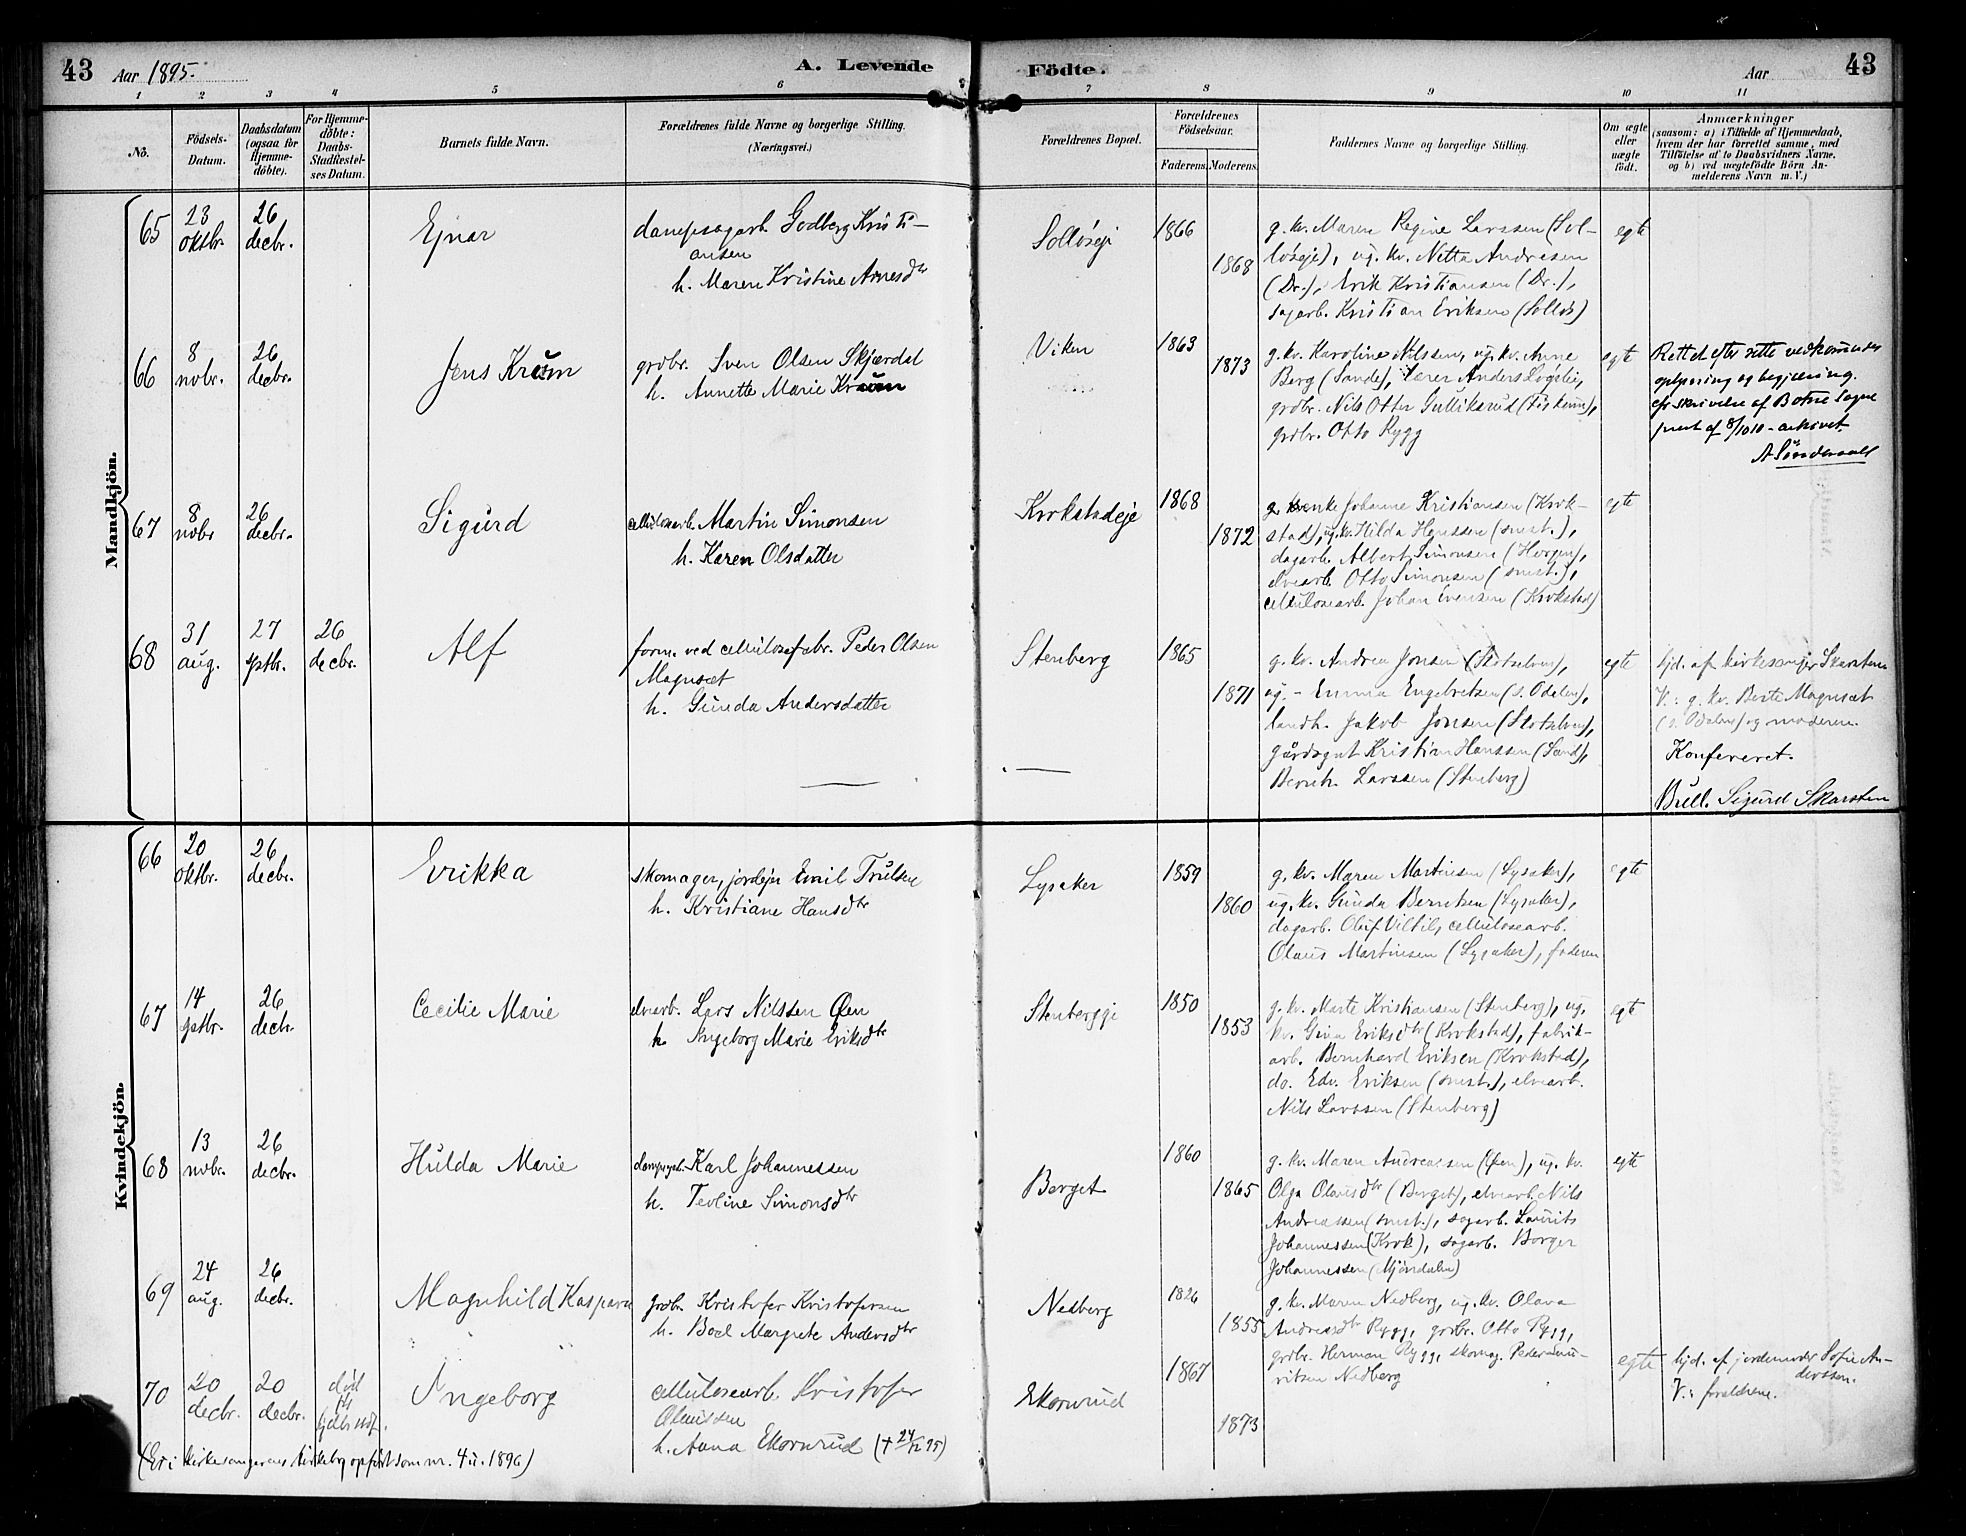 43 Aar 1895. A. Levende
Födte. Aar 43
1 2 3 4 5 6 7 8 9 10 11
No.
Födsels-
Datum.
Daabsdatum
(ogsaa for
Hjemme-
döbte).
For Hjemme-
döbte:
Daabs-
Stadfæstel-
ses Datum.
Barnets fulde Navn.
Forældrenes fulde Navne og borgerlige Stilling.
(Næringsvei.)
Forældrenes Bopæl.
Forældrenes
Födselsaar.
Faderens. Moderens.
Faddernes Navne og borgerlige Stilling.
Om ægte
eller
uægte
födt.
Anmærkninger
(saasom: a) i Tilfælde af Hjemmedaab,
hvem der har forrettet samme, med
Tilföielse af to Daabsvidners Navne,
og b) ved uægtefödte Börn An-
melderens Navn m. V.)
Mandkjön.
65
23
oktbr.
26
decbr.
Ejnar
dampsagarb. Godberg Kristi-
ansen
h. Maren Kristine Arnesdtr
Solløseje
1866
1868
g. kv. Maren Regine Larssen (Sol-
løseje), ug. kv. Netta Andresen
(Dr.), Erik Kristiansen (Dr.),
sagarb. Kristian Eriksen (Solløs)
egte
66
8
novbr.
26
decbr.
Jens Krüm
grdbr. Sven Olsen Skjærdal
h. Annette Marie Krüm
Viken
1863
1873
g. kv. Karoline Nilssen, ug. kv. Anne
Berg (Sande), lærer Anders Løgslie,
grdbr. Nils Otter Gulliksrud (Fiskum),
grdbr. Otto Rygg
egte
Rettet efter rette vedkommendes
oplysning og begjæring.
cfr skrivelse af Botne sogne
prest af 8/10 10 - arkivet.
67
8
novbr
26
decbr.
Sigurd
cellulosearb. Martin Simonsen
h. Karen Olsdatter
Krokstadeje
1868
1872
g. kvenke Johanne Kristiansen (Krok-
stad), ug. kv. Hilda Hanssen (smst.),
dagarb. Albert Simonsen (Horgen),
elvearb. Otto Simonsen (smst.),
cellulosearb. Johan Evensen (Krokstad)
egte
68
31
aug.
27
sptbr.
26
decbr.
Alf
form. ved cellulosefabr. Peder Olsen
Magnsæt
h. Gunda Andersdatter
Stenberg
1865
1871
g. kv. Andrea Jonsen (Skotselven),
ug. - Emma Engebretsen (s. Odalen),
landh. Jakob Jonsen (Skotselven),
gårdsgut Kristian Hanssen (Sand),
Bernh. Larssen (Stenberg)
egte
hjd. af kirkesanger Skarsten
V.: g. kv. Berte Magnsæt
(s. Odalen) og moderen.
Konfereret.
Bull. Sigurd Skarsten
Kvindekjön.
66
20
oktbr.
26
decbr.
Erikka
skomager, jordejer Emil Trulsen
h. Kristiane Hansdtr
Lysaker
1859
1860
g. kv. Maren Martinsen (Lysaker),
ug. kv. Gunda Berntsen (Lysaker),
dagarb. Oluf Viltil, cellulosearb.
Olaus Martinsen (Lysaker), faderen
egte
67
14
sptbr.
26
decbr.
Cecilie Marie
elvearb. Lars Nilssen Øen
h. Ingeborg Marie Eriksdtr
Stenbergeje
1850
1853
g. kv. Marte Kristiansen (Stenberg), ug.
kv. Gina Eriksdtr (Krokstad), fabrik-
arb. Bernhard Eriksen (Krokstad),
do. Edv. Eriksen (smst.), elvearb.
Nils Larssen (Stenberg)
egte
68
13
novbr.
26
decbr.
Hulda Marie
Karl Johannessen
h. Teoline Simonsdtr
Berget
1860
1865
g. kv. Maren Andreassen (Øen), ug. kv.
Olga Olausdtr (Berget), elvearb. Nils
Andreassen (smst.), sagarb. Laurits
Johannessen (Krok), sagarb. Borger
Johannessen (Mjøndalen)
egte
69
24
aug.
26
decbr.
Magnhild Kaspara
grdbr. Kristofer Kristofersen
h. Boel Margrete Andersdtr
Nedberg
1826
1855
g. kv. Maren Nedberg, ug. kv. Olava
Andreasdtr Rygg, grdbr. Otto Rygg,
grdbr. Herman Rygg, skomag. Peder Lau-
ritsen Nedberg
70
20
decbr.
20
decbr.
død
før
stadf.
Ingeborg
cellulosearb. Kristofer
Olaussen
h. Anna Ekornrud (+ 24/12 95)
Ekornrud
1867
1873
egte
hjd. af jordemoder Sofie An-
derssen.
V.: forældrene.
(Er i kirkesangerens kirkebog opført som nr. 4 i 1896)